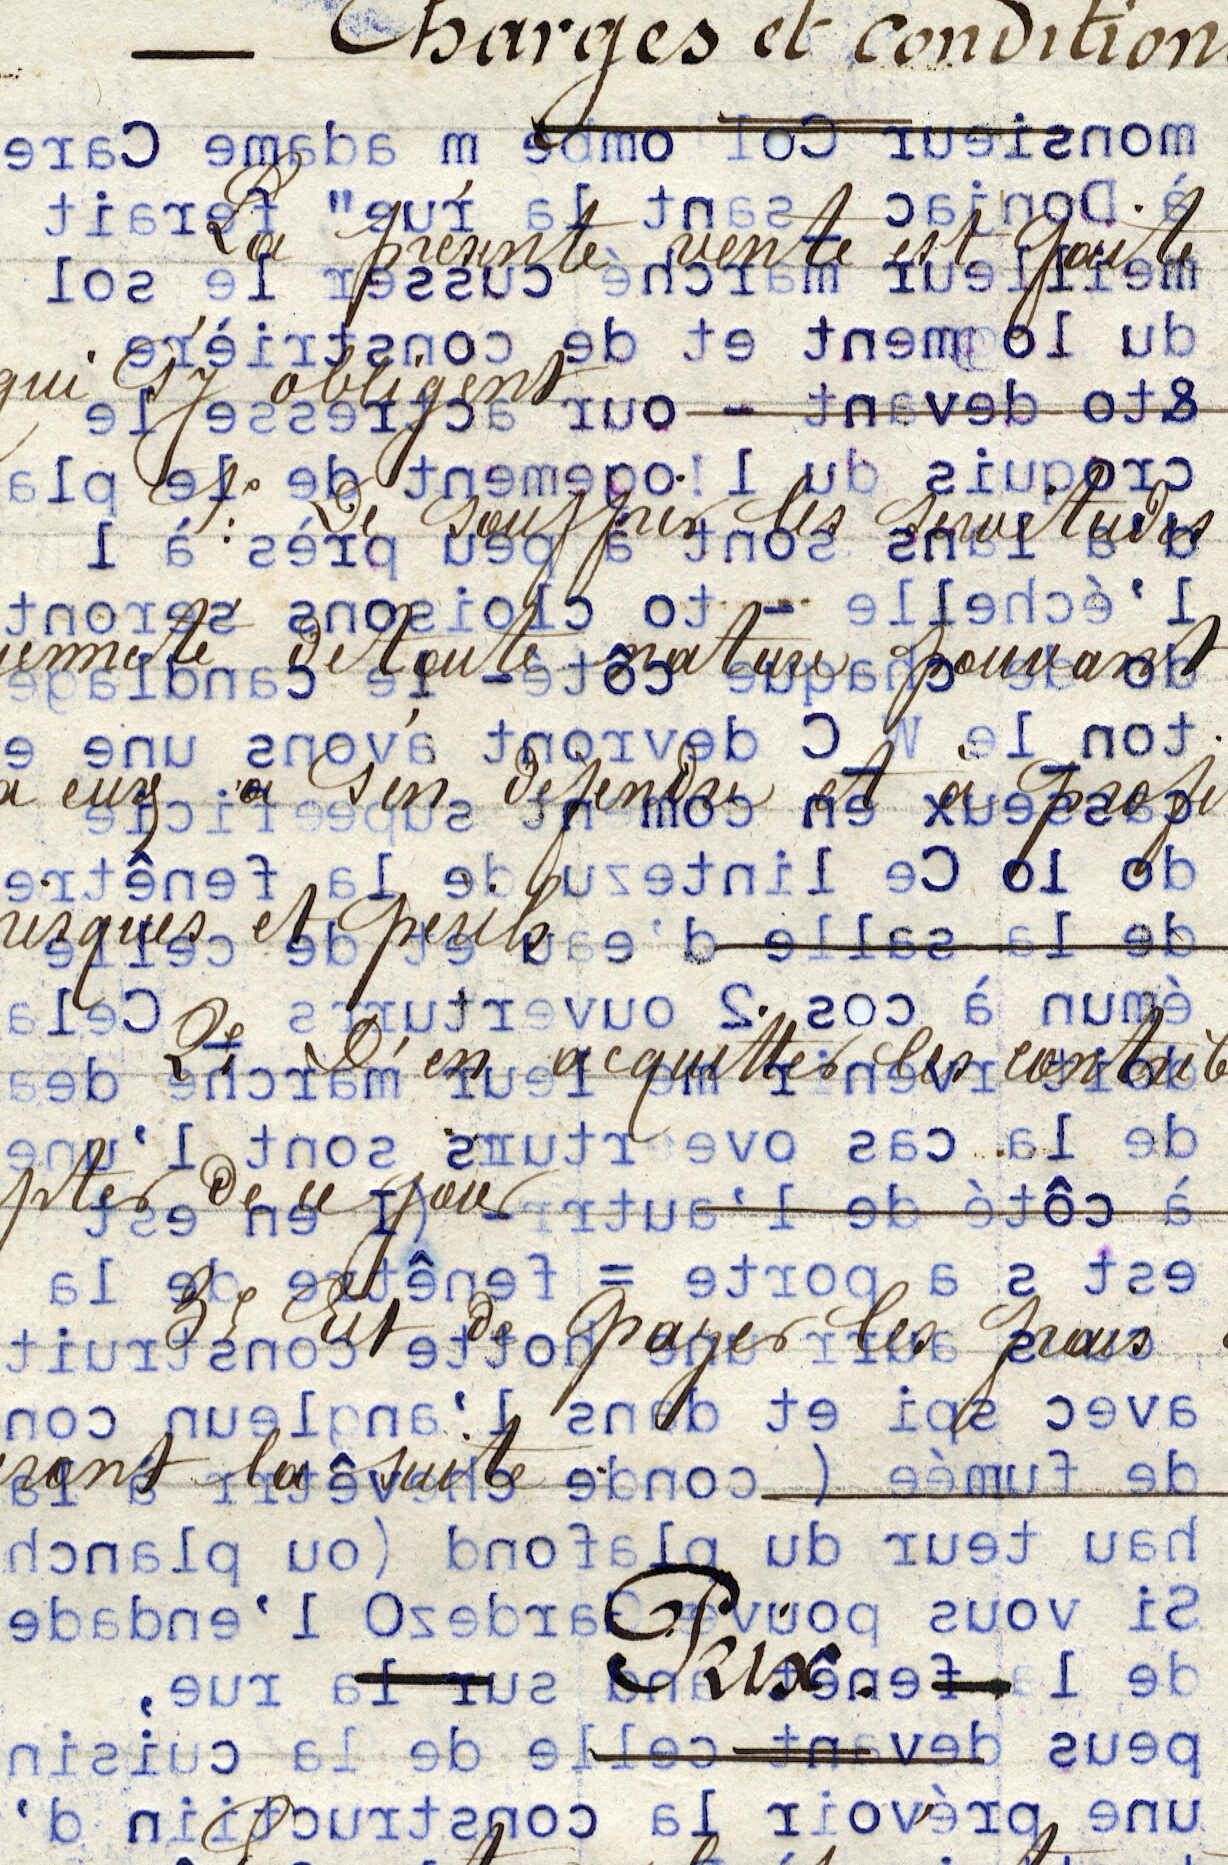 Charges et condition
monsieur Col ombe m adame Care
à Donjac sant la rue" ferait
La présente vente est faite
meilleur marché cusser le sol
du lo gment et de constriére
qui s'y obligent
&to devant - our actresse le
croquis du l ogement de le pla
1° De souffrir les servitudes
d a lans sont à peu près à l
l'échelle - to cloisons seront
de toute nature pouvant
do de chaque côté - le candlage
ton le W C devront avons une e
a eux a s'en défendre et à profi
casseux en com nt supeericie
do lo Ce lintezu de la fenêtre
risques et périls
de la salle d'eau et de celle
émun à cos 2 ouverturrs Cela
2e D'en acquitter les contrib
r me leur marché dea
de la cas ove rturs sont l'une
pter de ce jour
à côté de l'autrr - (I en est
est s a porte = fenêtre de la
3e Et de payer les frais
une hotte construit
avec spi et dans l'angleun con
ront la suite
de fumée ( conde chevêtrr à la
hau teur du plafond (ou planch
Si vous pouvez GardezO l'endade
Prix.
de l a fenêt sur la rue,
peus devant celle de la cuisin
une prévoir la constructiin d'